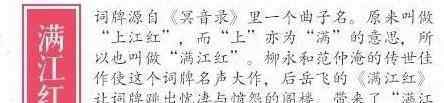 满江红
词牌源自《冥音录》里一个曲子名。原来叫做
“上江红”，而“上”亦为“满”的意思，所
以也叫做“满江红”。柳永和范仲淹的传世佳
作使这个词牌名声大作，后岳飞的《满江红》
让词牌跳出忧凄与愤怨的阁楼，带来了“满江